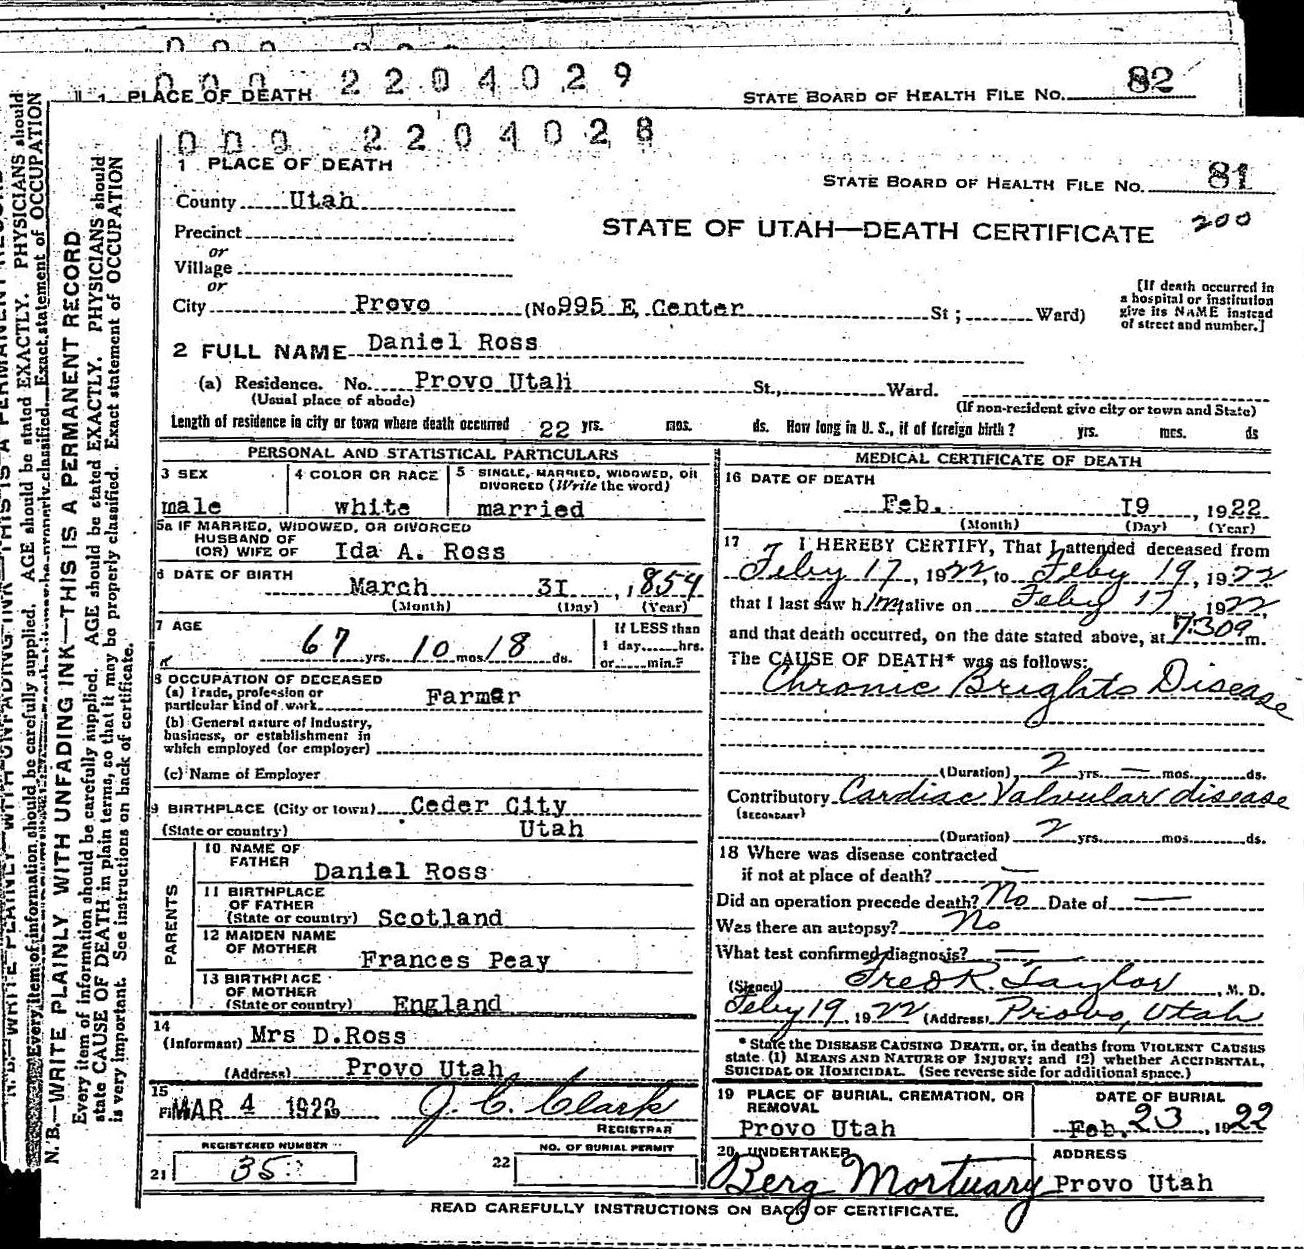 000 2204029
1 PLACE OF DEATH
STATE BOARD OF HEALTH FILE NO. 82
000 2204028
1 PLACE OF DEATH
STATE BOARD OF HEALTH FILE NO. 81
County Utah
200
STATE OF UTAH—DEATH CERTIFICATE
Precinct
or
Village
or
City Provo (No 995 E. Center St; Ward)
[If death occurred in
a hospital or institution
give its NAME instead
of street and number.]
2 FULL NAME Daniel Ross
(a) Residence. No. Provo Utah St., Ward.
(Usual place of abode)
(If non-resident give city or town and State)
Length of residence in city or town where death occurred 22 yrs. mos. ds. How long in U. S., if of foreign birth? yrs. mos. ds
PERSONAL AND STATISTICAL PARTICULARS
3 SEX
male
4 COLOR OR RACE
white
5 SINGLE, MARRIED, WIDOWED, OR
DIVORCED (Write the word)
married
5a IF MARRIED, WIDOWED, OR DIVORCED
HUSBAND OF
(OR) WIFE OF Ida A. Ross
6 DATE OF BIRTH
March 31, 1854
(Month) (Day) (Year)
7 AGE
67 yrs. 10 mos 18 ds.
If LESS than
1 day hrs.
or min.?
8 OCCUPATION OF DECEASED
(a) Trade, profession or
particular kind of work Farmer
(b) General nature of Industry,
business, or establishment in
which employed (or employer)
(c) Name of Employer
9 BIRTHPLACE (City or town) Ceder City
(State or country) Utah
PARENTS
10 NAME OF
FATHER
Daniel Ross
11 BIRTHPLACE
OF FATHER
(State or country) Scotland
12 MAIDEN NAME
OF MOTHER
Frances Peay
13 BIRTHPLACE
OF MOTHER
(State or country) England
14
(Informant) Mrs D.Ross
(Address) Provo Utah
15
MAR 4 1922 J. C. Clark
REGISTRAR
REGISTERED NUMBER
21 35
NO. OF BURIAL PERMIT
22
MEDICAL CERTIFICATE OF DEATH
16 DATE OF DEATH
Feb. 19, 1922
(Month) (Day) (Year)
17 I HEREBY CERTIFY, That I attended deceased from
Feby 17, 1922, to Feby 19, 1922
that I last saw him alive on Feby 17, 1922
and that death occurred, on the date stated above, at 7309 m.
The CAUSE OF DEATH* was as follows:
Chronic Brights Disease
(Duration) 2 yrs. — mos. ds.
Contributory Cardiac Valvular disease
(SECONDARY)
(Duration) 2 yrs. mos. ds.
18 Where was disease contracted
if not at place of death? —
Did an operation precede death? No Date of —
Was there an autopsy? No
What test confirmed diagnosis? —
(Signed) Fred R. Taylor, M. D.
Feby 19, 1922 (Address) Provo, Utah
* State the DISEASE CAUSING DEATH, or, in deaths from VIOLENT CAUSES
state (1) MEANS AND NATURE OF INJURY; and (2) whether ACCIDENTAL,
SUICIDAL OR HOMICIDAL. (See reverse side for additional space.)
19 PLACE OF BURIAL, CREMATION, OR
REMOVAL
Provo Utah
DATE OF BURIAL
Feb. 23, 1922
20 UNDERTAKER
Berg Mortuary
ADDRESS
Provo Utah
READ CAREFULLY INSTRUCTIONS ON BACK OF CERTIFICATE.
N. B.—WRITE PLAINLY WITH UNFADING INK—THIS IS A PERMANENT RECORD
Every item of information should be carefully supplied. AGE should be stated EXACTLY. PHYSICIANS should
state CAUSE OF DEATH in plain terms, so that it may be properly classified. Exact statement of OCCUPATION
is very important. See instructions on back of certificate.